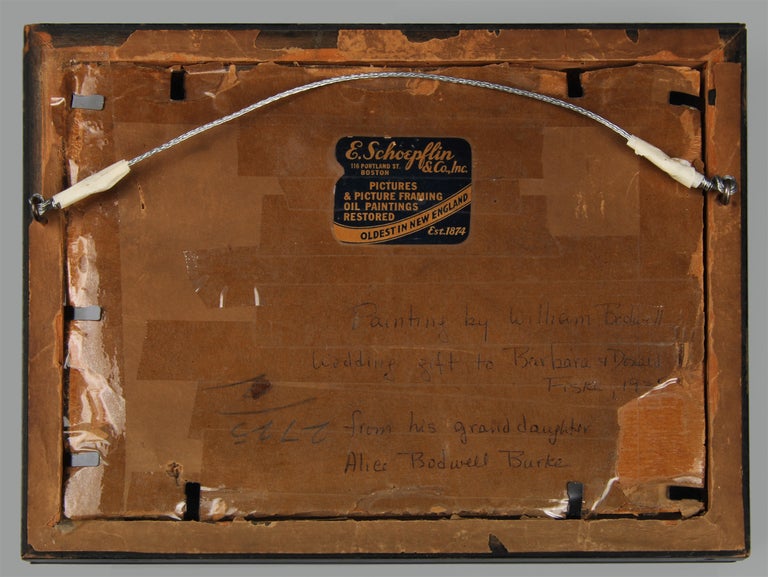 E. Schoepflin
& Co., Inc.
116 PORTLAND ST.
BOSTON
PICTURES
& PICTURE FRAMING
OIL PAINTINGS
RESTORED
OLDEST IN NEW ENGLAND
Est. 1874
Painting by William Bodwell
Wedding gift to Barbara & Donald
Fiske,
from his granddaughter
Alice Bodwell Burke
2725